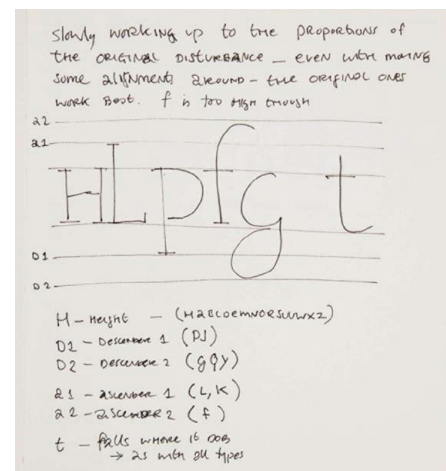 Slowly working up to the proportions of
the original disturbance – even with moving
some alignments around – the original ones
work best. f is too high though
a2
a1
HLpfg t
D1
D2
H – Height – (HABCOEMNORSUVWXZ)
D1 – Descender 1 (PJ)
D2 – Descender 2 (gQy)
a1 – ascender 1 (L, K)
a2 – ascender 2 (f)
t – falls where it does
→ as with all types